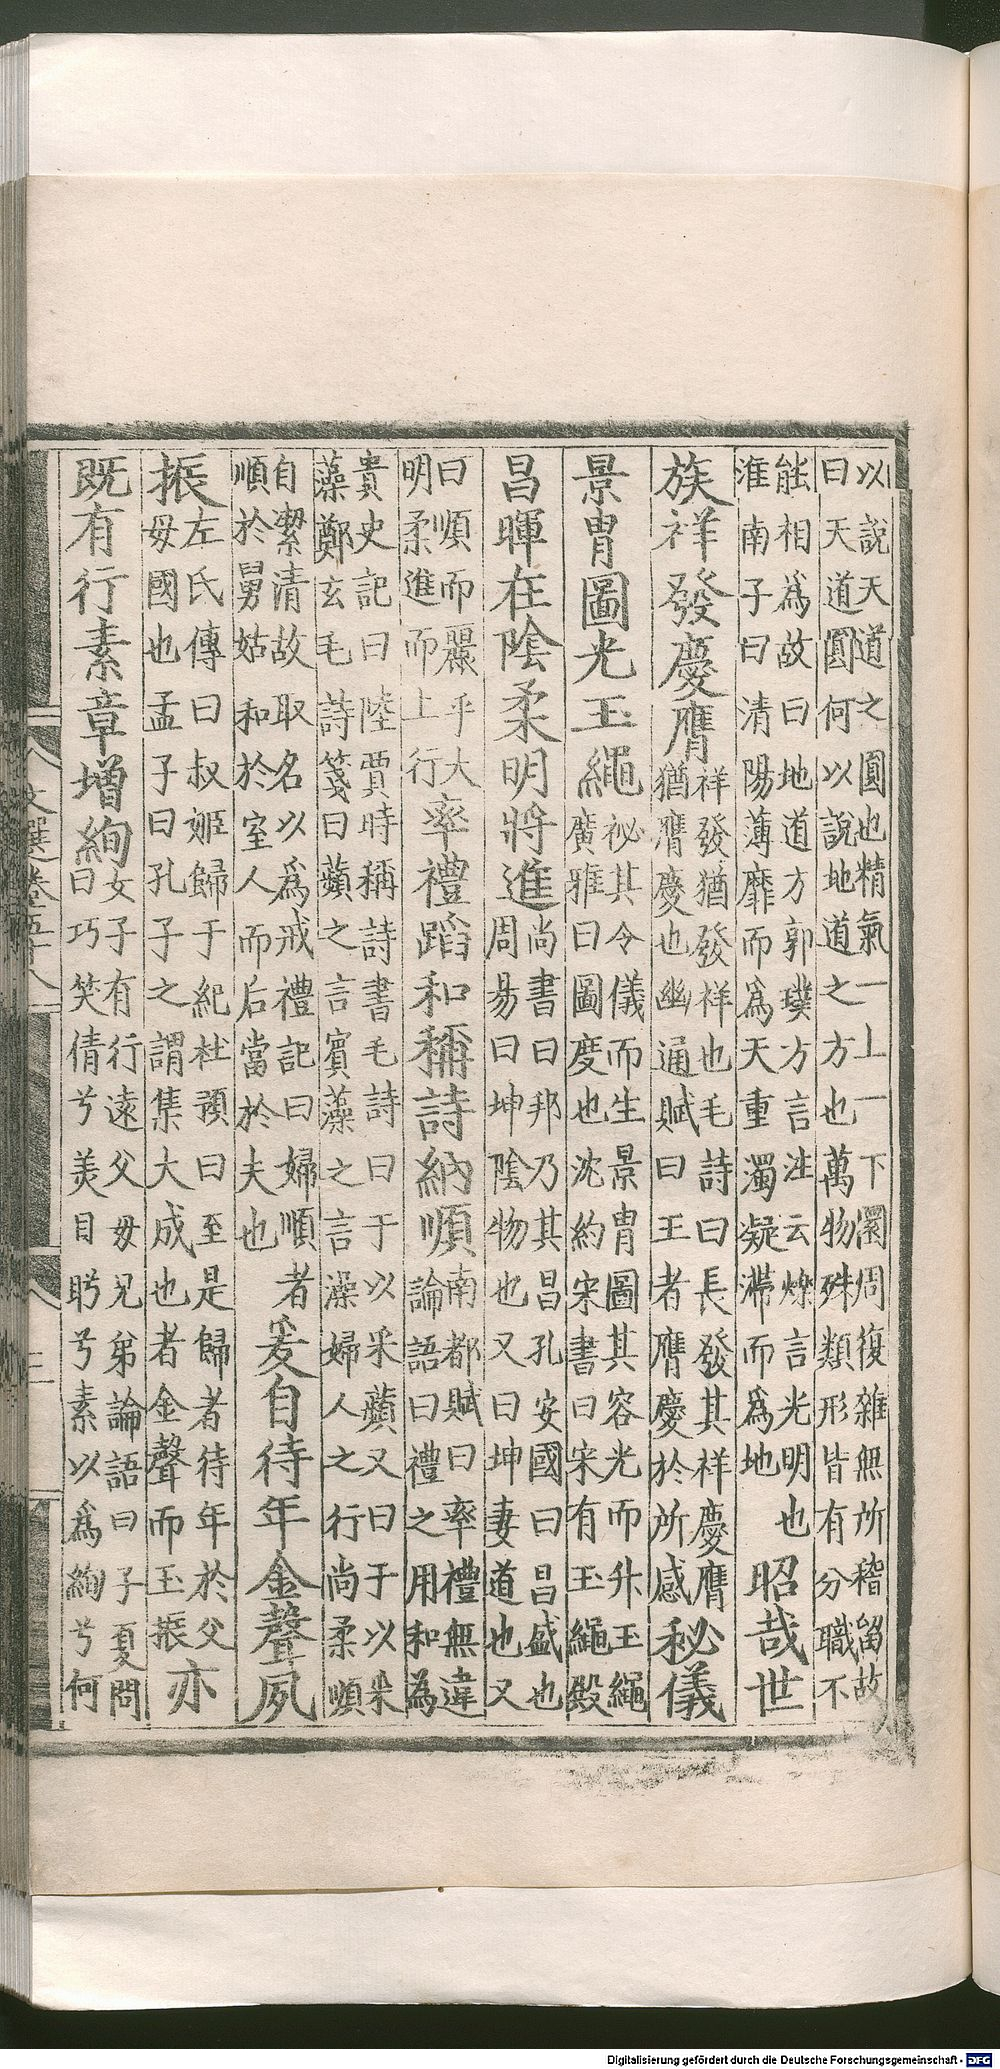 以說天道之圓也精氣一上一下圜周復雜無所稽留故
曰天道圓何以說地道之方也萬物殊類形皆有分職不
能相爲故曰地道方郭璞方言注云爍言光明也
淮南子曰清陽薄靡而爲天重濁凝滯而爲地
昭哉世
族祥發慶膺
祥發猶發祥也毛詩曰長發其祥慶膺
猶膺慶也幽通賦曰王者膺慶於所感
祕儀
景胄圖光玉繩
祕其令儀而生景胄圖其容光而升玉繩
廣雅曰圖度也沈約宋書曰宋有玉繩殿
昌暉在陰柔明將進
尚書曰邦乃其昌孔安國曰昌盛也
周昜曰坤陰物也又曰坤妻道也又
曰順而麗乎大
明柔進而上行
率禮蹈和稱詩納順
南都賦曰率禮無違
論語曰禮之用和為
貴史記曰陸賈時稱詩書毛詩曰于以采蘋又曰于以采
藻鄭玄毛詩箋曰蘋之言賓藻之言澡婦人之行尚柔順
自潔清故取名以爲戒禮記曰婦順者
順於舅姑和於室人而后當於夫也
爰自待年金聲夙
振
左氏傳曰叔姬歸于紀杜預曰至是歸者待年於父
母國也孟子曰孔子之謂集大成也者金聲而玉振
亦
既有行素章增絢
女子有行遠父母兄弟論語曰子夏問
曰巧笑倩兮美目盻兮素以爲絢兮何
文選卷五十八
三
Digitalisierung gefördert durch die Deutsche Forschungsgemeinschaft - DFG